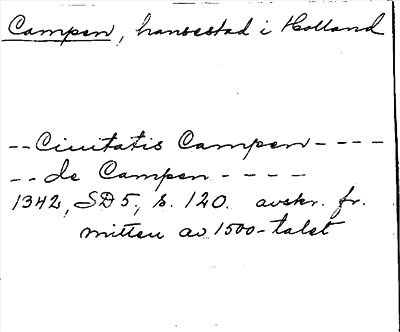 Campen, hansestad i Holland
-- Ciuitatis Campen - - - -
-- de Campen - - - -
1342, SD 5, s. 120. avskr. fr.
mitten av 1500-talet